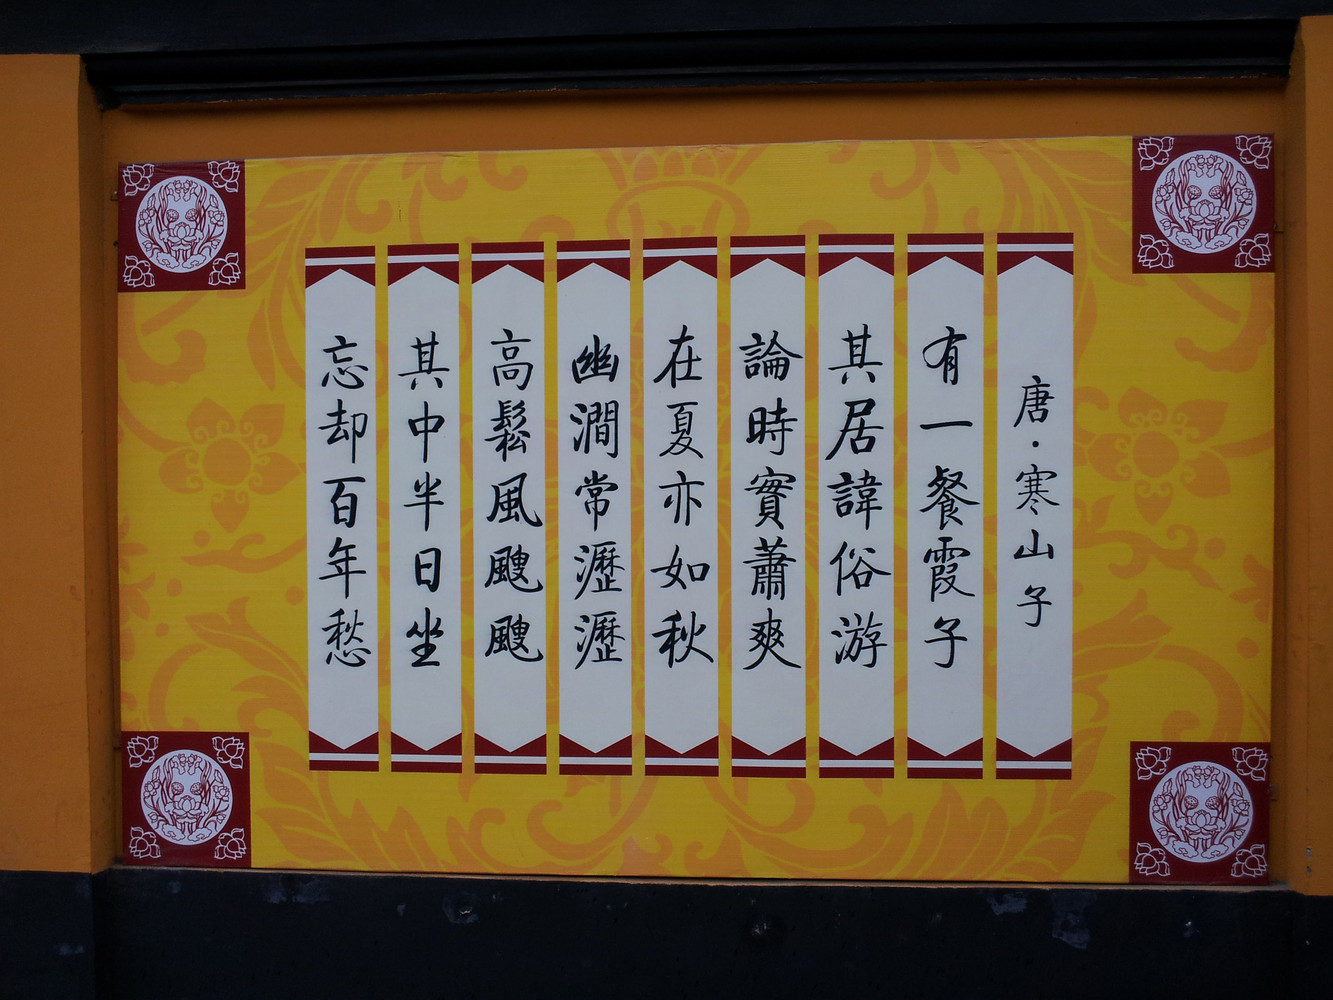 唐·寒山子
有一餐霞子
其居諱俗游
論時實蕭爽
在夏亦如秋
幽澗常瀝瀝
高鬆風颼颼
其中半日坐
忘却百年愁